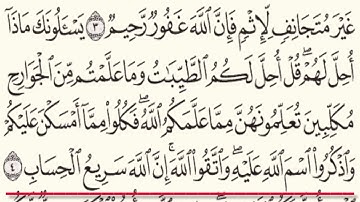 غَيْرَ مُتَجَانِفٍ لِّإِثْمٍ فَإِنَّ ٱللَّهَ غَفُورٌ رَّحِيمٌ ٣ يَسْـَٔلُونَكَ مَاذَآ
أُحِلَّ لَهُمْ ۖ قُلْ أُحِلَّ لَكُمُ ٱلطَّيِّبَـٰتُ وَمَا عَلَّمْتُم مِّنَ ٱلْجَوَارِحِ
مُكَلِّبِينَ تُعَلِّمُونَهُنَّ مِمَّا عَلَّمَكُمُ ٱللَّهُ ۖ فَكُلُوا۟ مِمَّآ أَمْسَكْنَ عَلَيْكُمْ
وَٱذْكُرُوا۟ ٱسْمَ ٱللَّهِ عَلَيْهِ ۖ وَٱتَّقُوا۟ ٱللَّهَ ۚ إِنَّ ٱللَّهَ سَرِيعُ ٱلْحِسَابِ ٤